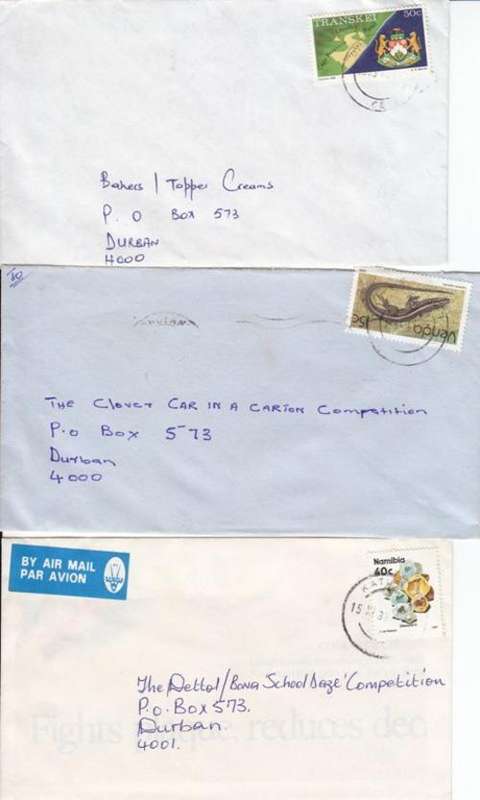 TRANSKEI 50c
Bakers / Topper Creams
P. O Box 573
DURBAN
4000
To
Venda 15c
THE Clover CAR IN A CARTON Competition
P.o Box 573
Durban
4000
BY AIR MAIL
PAR AVION
Namibia
40c
KAT
15
The Dettol/Bona School Daze' Competition
P.O. Box 573.
Durban.
4001.
Fights reduces